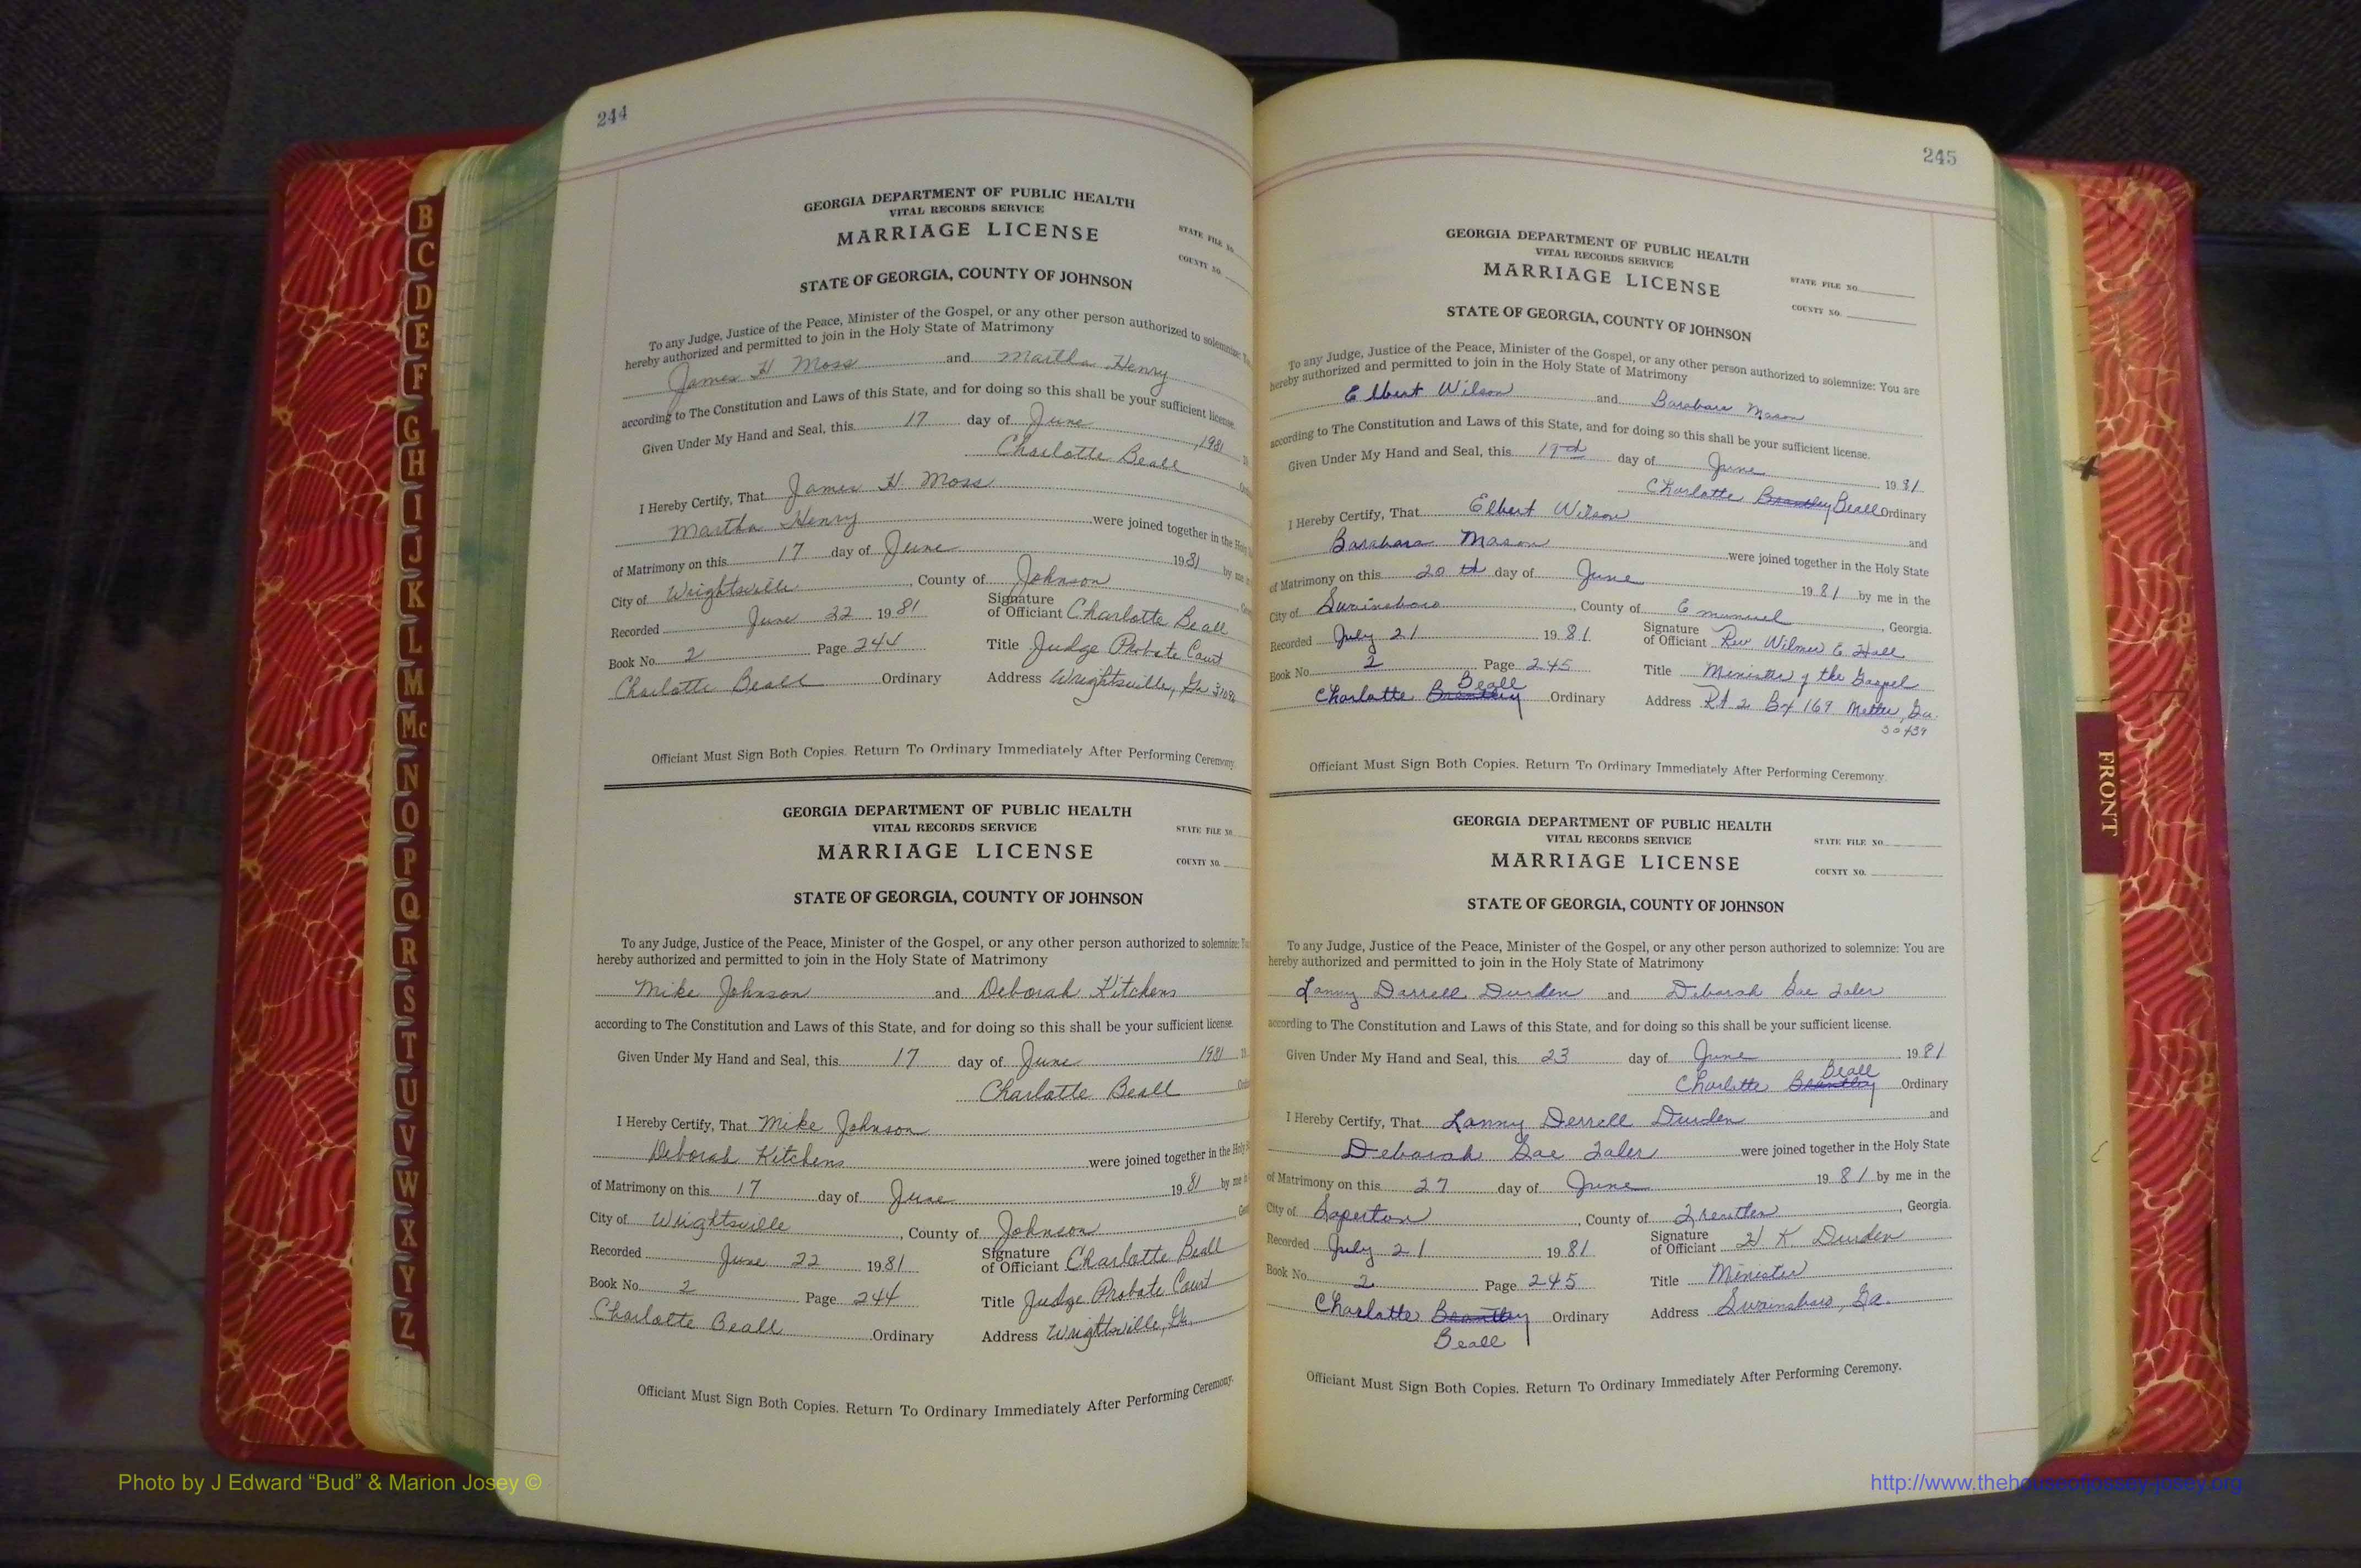 244
GEORGIA DEPARTMENT OF PUBLIC HEALTH
VITAL RECORDS SERVICE
MARRIAGE LICENSE
STATE FILE NO.
COUNTY NO.
STATE OF GEORGIA, COUNTY OF JOHNSON
To any Judge, Justice of the Peace, Minister of the Gospel, or any other person authorized to solemnize:
hereby authorized and permitted to join in the Holy State of Matrimony
James H Moss and Martha Henry
according to The Constitution and Laws of this State, and for doing so this shall be your sufficient license.
Given Under My Hand and Seal, this 17 day of June, 1981
Charlotte Beall
I Hereby Certify, That James H Moss
Martha Henry were joined together in the Holy
of Matrimony on this 17 day of June 1981 by me in
City of Wrightsville, County of Johnson
Recorded June 22 1981 Signature of Officiant Charlotte Beall
Book No. 2 Page 244 Title Judge Probate Court
Charlotte Beall Ordinary Address Wrightsville, Ga 31096
Officiant Must Sign Both Copies. Return To Ordinary Immediately After Performing Ceremony.
GEORGIA DEPARTMENT OF PUBLIC HEALTH
VITAL RECORDS SERVICE
MARRIAGE LICENSE
STATE FILE NO.
COUNTY NO.
STATE OF GEORGIA, COUNTY OF JOHNSON
To any Judge, Justice of the Peace, Minister of the Gospel, or any other person authorized to solemnize:
hereby authorized and permitted to join in the Holy State of Matrimony
Mike Johnson and Deborah Kitchens
according to The Constitution and Laws of this State, and for doing so this shall be your sufficient license.
Given Under My Hand and Seal, this 17 day of June 1981
Charlotte Beall
I Hereby Certify, That Mike Johnson
Deborah Kitchens were joined together in the Holy
of Matrimony on this 17 day of June 1981 by me
City of Wrightsville, County of Johnson
Recorded June 22 1981 Signature of Officiant Charlotte Beall
Book No. 2 Page 244 Title Judge Probate Court
Charlotte Beall Ordinary Address Wrightsville, Ga.
Officiant Must Sign Both Copies. Return To Ordinary Immediately After Performing Ceremony.
245
GEORGIA DEPARTMENT OF PUBLIC HEALTH
VITAL RECORDS SERVICE
MARRIAGE LICENSE
STATE FILE NO.
COUNTY NO.
STATE OF GEORGIA, COUNTY OF JOHNSON
To any Judge, Justice of the Peace, Minister of the Gospel, or any other person authorized to solemnize: You are
hereby authorized and permitted to join in the Holy State of Matrimony
Elbert Wilson and Barabara Mason
according to The Constitution and Laws of this State, and for doing so this shall be your sufficient license.
Given Under My Hand and Seal, this 19th day of June 1981
Charlotte Brantley Beall Ordinary
I Hereby Certify, That Elbert Wilson and
Barabara Mason were joined together in the Holy State
of Matrimony on this 20th day of June 1981 by me in the
City of Swainsboro, County of Emanuel, Georgia.
Recorded July 21 1981 Signature of Officiant Rev Wilmer E Hall
Book No. 2 Page 245 Title Minister of the Gospel
Charlotte Brantley Beall Ordinary Address Rt 2 Bx 169 Metter, Ga.
30439
Officiant Must Sign Both Copies. Return To Ordinary Immediately After Performing Ceremony.
GEORGIA DEPARTMENT OF PUBLIC HEALTH
VITAL RECORDS SERVICE
MARRIAGE LICENSE
STATE FILE NO.
COUNTY NO.
STATE OF GEORGIA, COUNTY OF JOHNSON
To any Judge, Justice of the Peace, Minister of the Gospel, or any other person authorized to solemnize: You are
hereby authorized and permitted to join in the Holy State of Matrimony
Lanny Darrell Durden and Deborah
according to The Constitution and Laws of this State, and for doing so this shall be your sufficient license.
Given Under My Hand and Seal, this 23 day of June 1981
Charlotte Brantley Beall Ordinary
I Hereby Certify, That Lanny Derrell Durden and
Deborah were joined together in the Holy State
of Matrimony on this 27 day of June 1981 by me in the
City of Soperton, County of Treutlen, Georgia.
Recorded July 21 1981 Signature of Officiant H K. Durden
Book No. 2 Page 245 Title Minister
Charlotte Brantley Ordinary Address Swainsboro, Ga.
Beall
Officiant Must Sign Both Copies. Return To Ordinary Immediately After Performing Ceremony.
B
C
D
E
F
G
H
I
J
K
L
M
Mc
N
O
P
Q
R
S
T
U
V
W
X
Y
Z
FRONT
Photo by J Edward “Bud” & Marion Josey ©
http://www.thehouseofjossey-josey.org